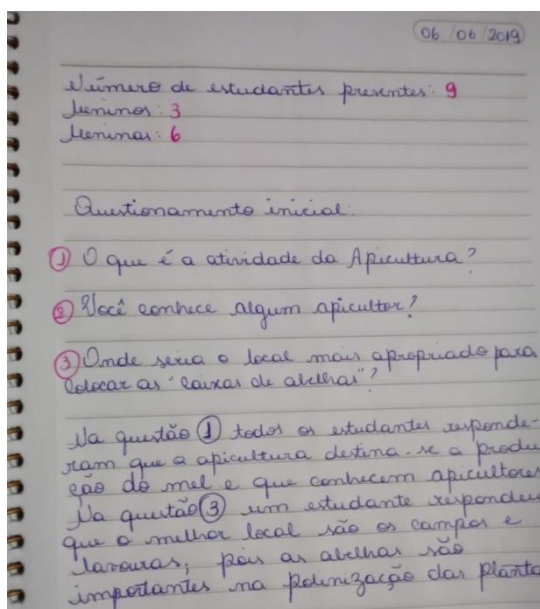 06/06/2019
Número de estudantes presentes: 9
Meninos: 3
Meninas: 6
Questionamento inicial:
① O que é a atividade da Apicultura?
② Você conhece algum apicultor?
③ Onde seria o local mais apropriado para
colocar as "caixas de abelhas"?
Na questão ① todos os estudantes responde-
ram que a apicultura destina-se a produ
ção do mel e que conhecem apicultores
Na questão ③ um estudante respondeu
que o melhor local são os campos e
lavouras, pois as abelhas são
importantes na polinização das planta